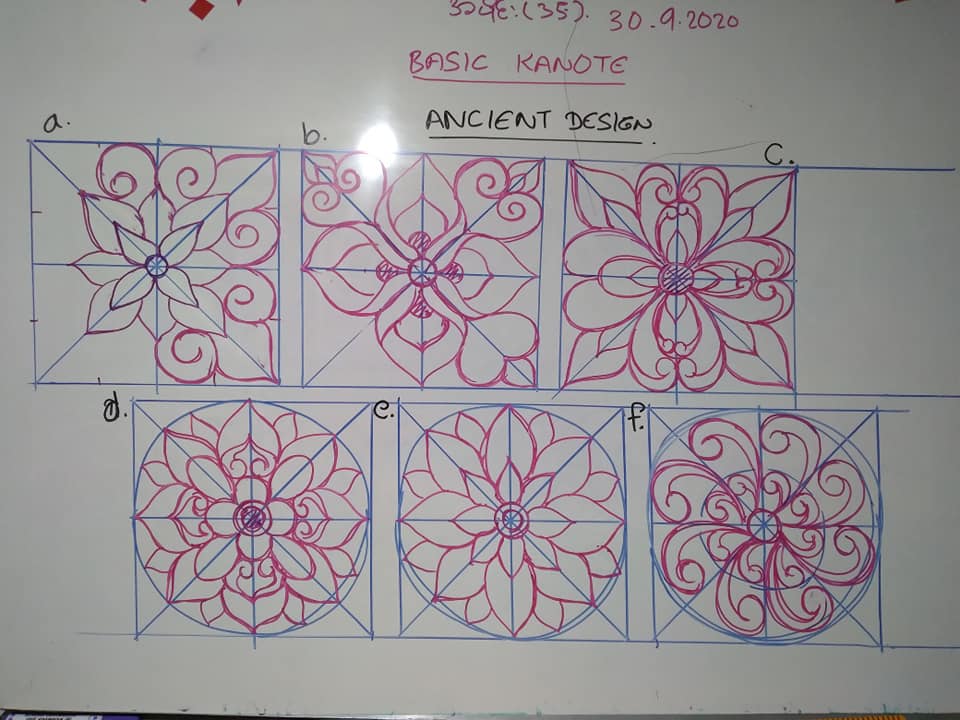 (35). 30.9.2020
BASIC KANOTE
ANCIENT DESIGN.
a.
b.
c.
d.
e.
f.